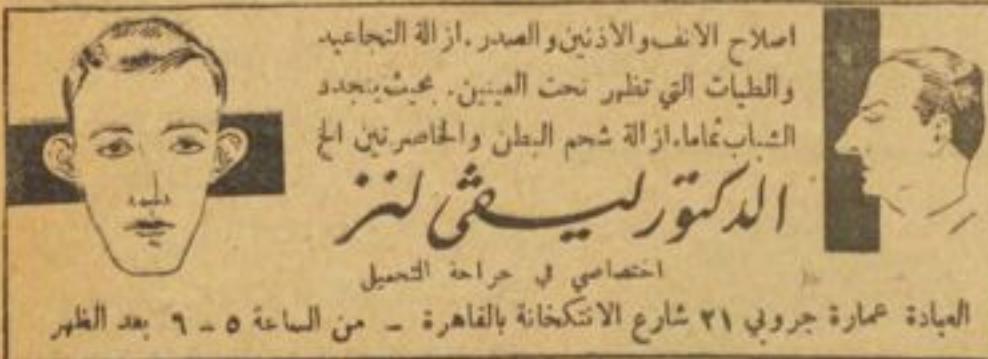 اصلاح الانف والاذنين والصدر. ازالة التجاعيد
والطيات التي تظهر تحت العينين. بحيث يتجدد
الشباب تماما. ازالة شحم البطن والخاصرتين الخ
الدكتور ليڤى لنز
اختصاصي في جراحة التجميل
العيادة عمارة جروبي ٢١ شارع الانتكخانة بالقاهرة – من الساعة ٥ – ٩ بعد الظهر